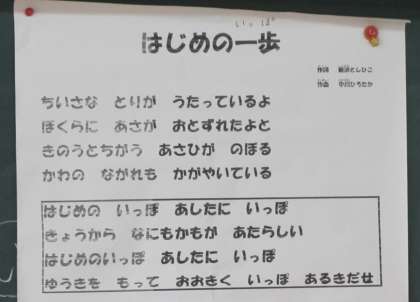 いっぽ
はじめの一歩
作詞 新沢としひこ
作曲 中川ひろたか
ちいさな とりが うたっているよ
ぼくらに あさが おとずれたよと
きのうとちがう あさひが のぼる
かわの ながれも かがやいている
はじめの いっぽ あしたに いっぽ
きょうから なにもかもが あたらしい
はじめのいっぽ あしたに いっぽ
ゆうきを もって おおきく いっぽ あるきだせ